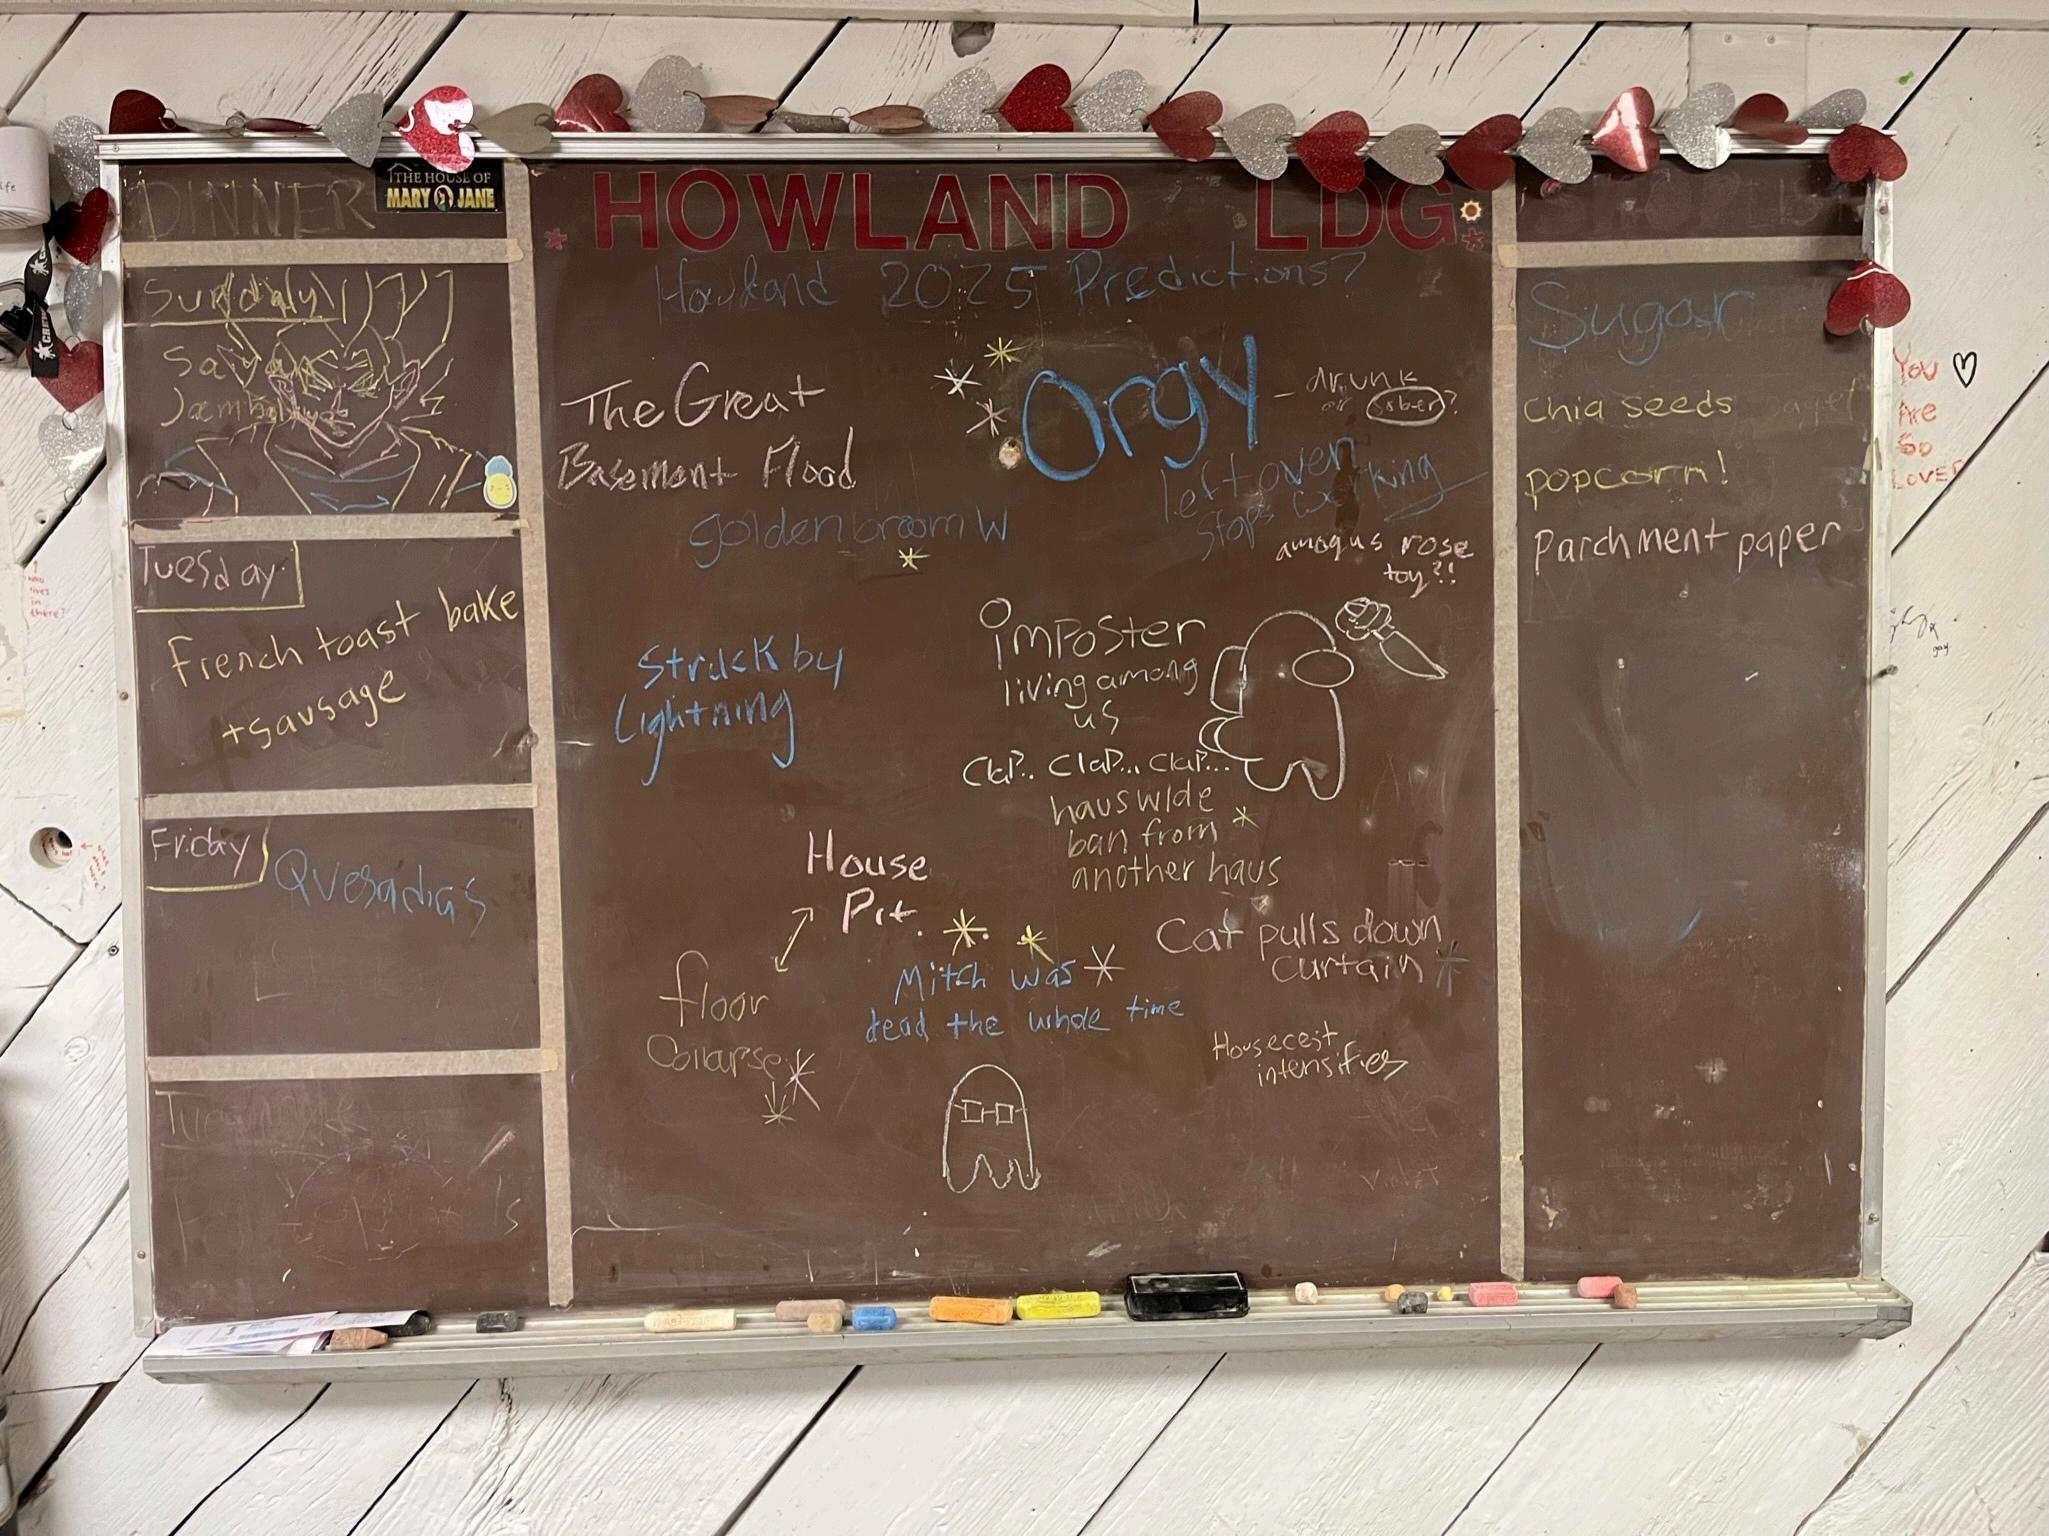 DINNER
THE HOUSE OF
MARY JANE
Sunday
Jambalaya
Tuesday
French toast bake
+sausage
Friday
Quesadias
HOWLAND LDG.
Howland 2025 Predictions?
The Great
Basement Flood
Orgy - drunk
or sober?
leftover king
stops working
goldenbroom W
amogus rose
toy?!
Struck by
Lightning
imposter
living among
us
Clap.. Clap... Clap...
hauswide
ban from
another haus
House
Pit.
floor
Collapse
Mitch was
dead the whole time
Cat pulls down
curtain
Housecest
intensifies
violet
Sugar
Chia seeds
popcorn!
Parchment paper
You
Are
So
LOVED
who
lives
in
there?
gay